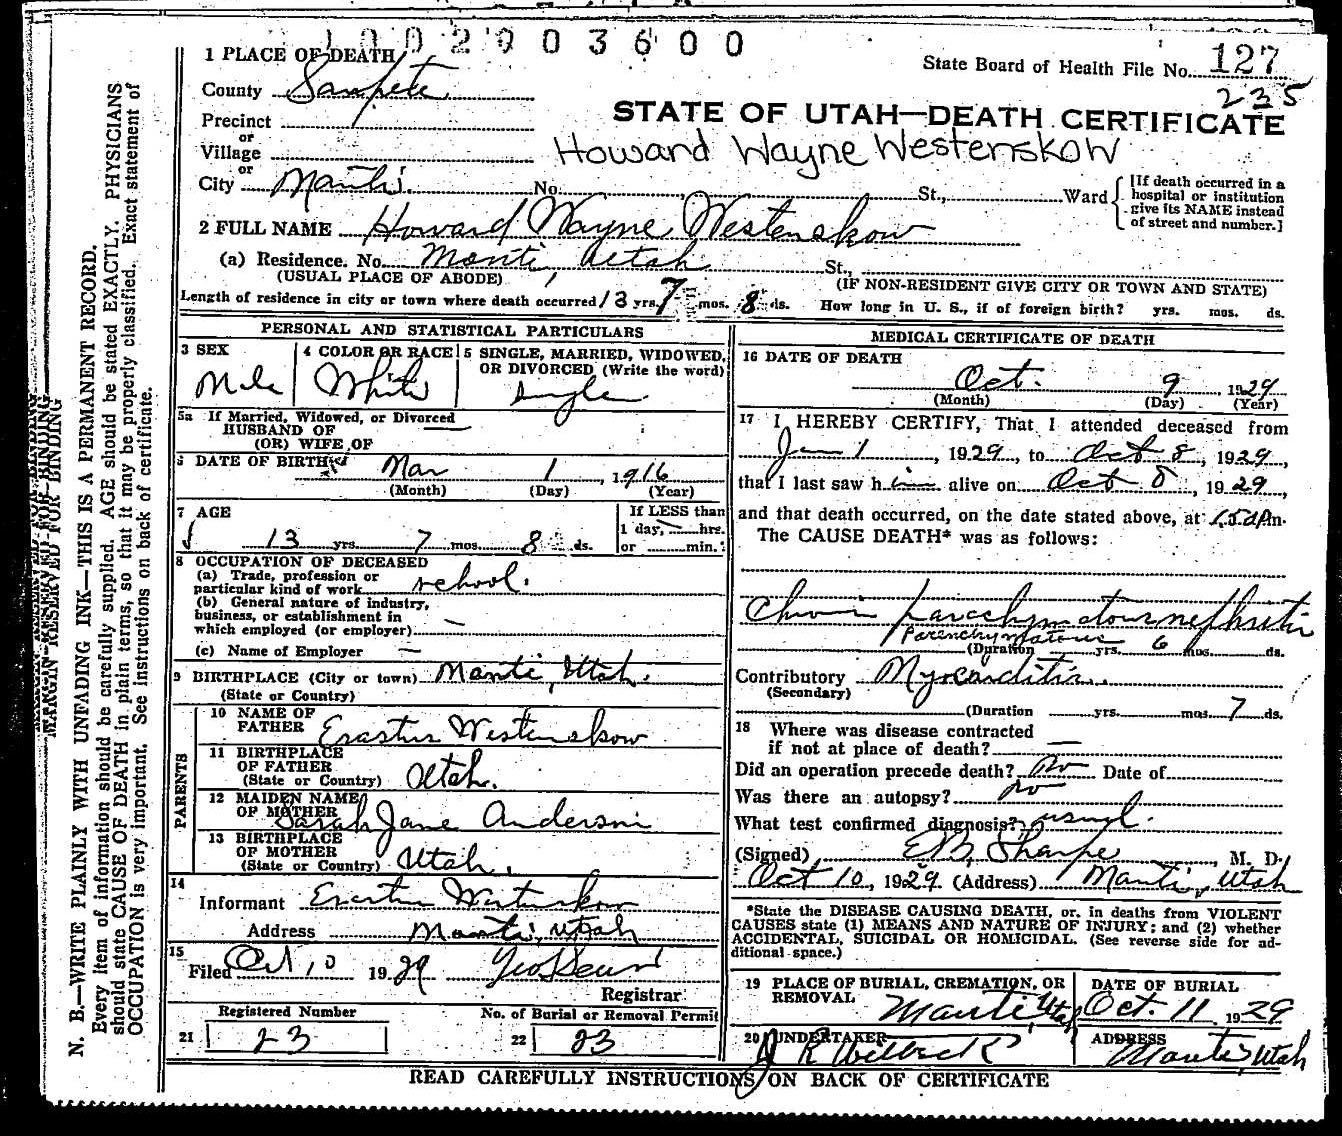 1002903600
1 PLACE OF DEATH
State Board of Health File No. 127
235
County Sanpete
STATE OF UTAH—DEATH CERTIFICATE
Precinct
or
Village
Howard Wayne Westenskow
or
City Manti No. St., Ward
[If death occurred in a hospital or institution give its NAME instead of street and number.]
2 FULL NAME Howard Wayne Westenskow
(a) Residence. No. Manti, Utah St.,
(USUAL PLACE OF ABODE) (IF NON-RESIDENT GIVE CITY OR TOWN AND STATE)
Length of residence in city or town where death occurred 13 yrs. 7 mos. 8 ds. How long in U. S., if of foreign birth? yrs. mos. ds.
PERSONAL AND STATISTICAL PARTICULARS
3 SEX 4 COLOR OR RACE 5 SINGLE, MARRIED, WIDOWED,
OR DIVORCED (Write the word)
Male White Single
5a If Married, Widowed, or Divorced
HUSBAND OF
(OR) WIFE OF
6 DATE OF BIRTH Mar 1, 1916
(Month) (Day) (Year)
7 AGE If LESS than
1 day, hrs.
13 yrs. 7 mos. 8 ds. or min.
8 OCCUPATION OF DECEASED
(a) Trade, profession or
particular kind of work school.
(b) General nature of industry,
business, or establishment in
which employed (or employer)
(c) Name of Employer
9 BIRTHPLACE (City or town) Manti, Utah.
(State or Country)
PARENTS
10 NAME OF
FATHER Erastus Westenskow
11 BIRTHPLACE
OF FATHER
(State or Country) Utah.
12 MAIDEN NAME
OF MOTHER Sarah Jane Anderson
13 BIRTHPLACE
OF MOTHER
(State or Country) Utah.
14
Informant Erastus Westenskow
Address Manti, Utah
15
Filed Oct 10 1929
Registrar
Registered Number No. of Burial or Removal Permit
21 23 22 23
MEDICAL CERTIFICATE OF DEATH
16 DATE OF DEATH
Oct. 9, 1929
(Month) (Day) (Year)
17 I HEREBY CERTIFY, That I attended deceased from
Jan 1, 1929, to Oct 8, 1929,
that I last saw him alive on Oct 8, 1929,
and that death occurred, on the date stated above, at m.
The CAUSE DEATH* was as follows:
Chronic parachymatous nephritis
Parenchymatous
(Duration yrs. 6 mos. ds.
Contributory Myocarditis.
(Secondary)
(Duration yrs. mos. 7 ds.
18 Where was disease contracted
if not at place of death?
Did an operation precede death? No Date of
Was there an autopsy? No
What test confirmed diagnosis? usual.
(Signed) E.B. Sharpe, M. D.
Oct 10, 1929 (Address) Manti, Utah
*State the DISEASE CAUSING DEATH, or, in deaths from VIOLENT
CAUSES state (1) MEANS AND NATURE OF INJURY; and (2) whether
ACCIDENTAL, SUICIDAL OR HOMICIDAL. (See reverse side for ad-
ditional space.)
19 PLACE OF BURIAL, CREMATION, OR
REMOVAL Manti, Utah
DATE OF BURIAL
Oct. 11 1929
20 UNDERTAKER
ADDRESS
Manti, Utah
READ CAREFULLY INSTRUCTIONS ON BACK OF CERTIFICATE
MARGIN RESERVED FOR BINDING
N. B.—WRITE PLAINLY WITH UNFADING INK—THIS IS A PERMANENT RECORD.
Every item of information should be carefully supplied. AGE should be stated EXACTLY. PHYSICIANS
should state CAUSE OF DEATH in plain terms, so that it may be properly classified. Exact statement of
OCCUPATION is very important. See instructions on back of certificate.